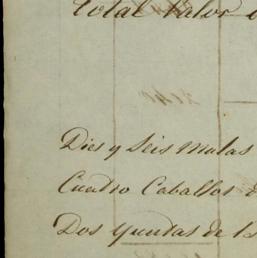 Total Valor
Dies y Seis Mulas
Cuatro Caballos
Dos yuntas de